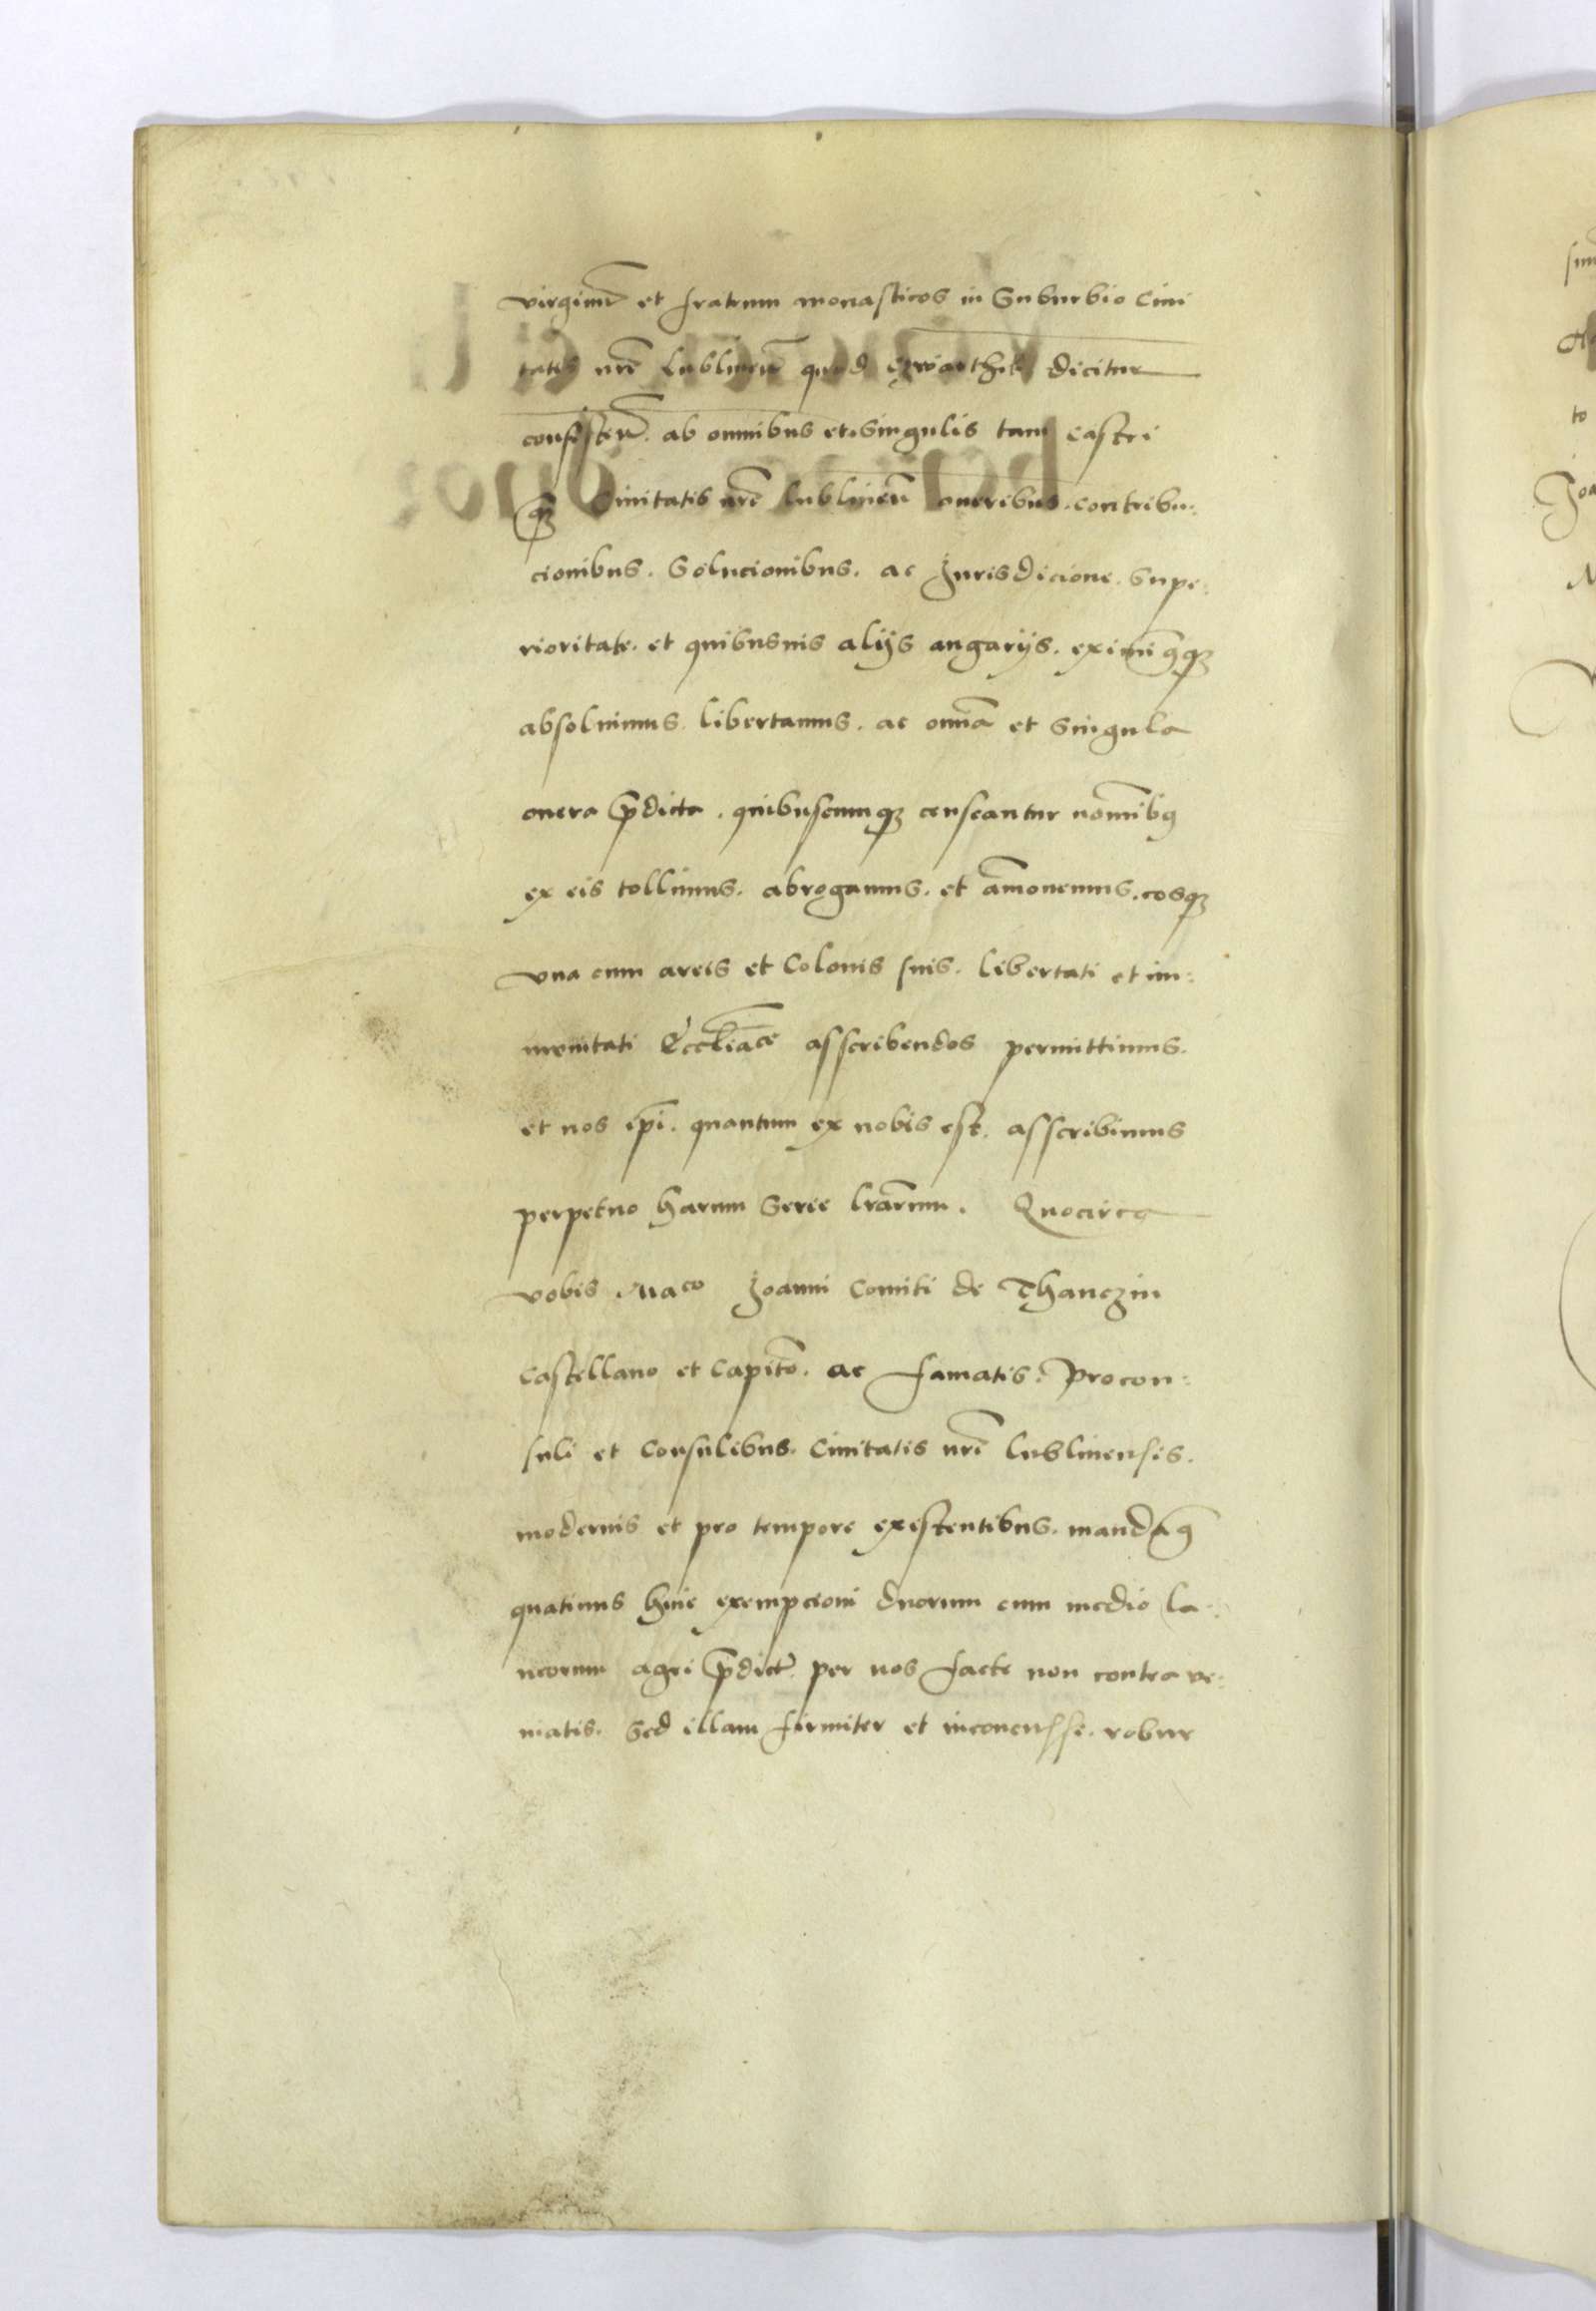 virginu͂ et fratrum monasticos in Suburbio Ciui
tatis nr̄e lublineñ quod czwarthek dicitur
consisteñ. ab omnibus et singulis tam Castri
qꝫ Ciuitatis nr̄e lublineñ oneribus. contribu:
cionibus. Solucionibus. ac Jurisdicione. Supe:
rioritate. et quibusuis alijs angarijs. eximim̄ꝰqꝫ
absoluimus. libertamus. ac om̄ia et Singula
onera p̄dicta. quibuscumqꝫ censeantur nom̄ibꝰ
ex eis tollimus. abrogamus. et am̄ouemus. eosqꝫ
vna cum areis et Colonis suis. libertati et im:
munitati Eccl̄iace asscribendos permittimus.
et nos ip̄i. quantum ex nobis est. asscribimus
perpetuo harum Serie lr̄arum. Quocirca
vobis Mᵃᶜᵒ Joanni Comiti de Thanczin
Castellano et Capit̄o. ac famatis. Procon:
suli et Consulibus. Ciuitatis nr̄e lublinensis.
modernis et pro tempore existentibus. mandam̄ꝰ
quatinus huic exempcioni duorum cum medio la:
neorum agri p̄dict͂ per nos facte non contra ve:
niatis. Sed illam firmiter et inconcusse. robur